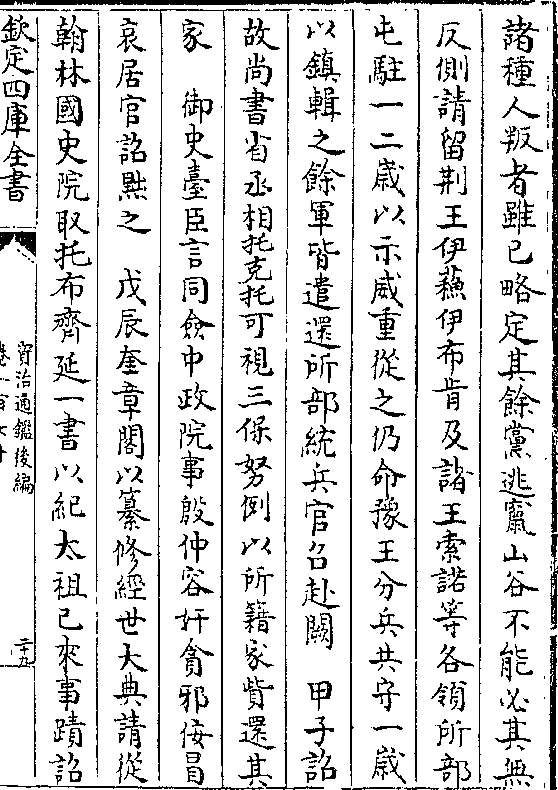 諸種人叛者雖已略定其餘黨逃竄山谷不能必其無
反側請留荆王伊蘓伊布肯及諸王索諾等各領所部
屯駐一二歲以示威重從之仍命豫王分兵共守一歲
以鎮輯之餘軍皆遣還所部統兵官召赴闕　甲子詔
故尚書省丞相托克托可視三保努例以所籍家貲還其
家　御史臺臣言同僉中政院事殷仲容奸貪邪佞冒
哀居官詔黜之　戊辰奎章閣以纂修經世大典請從
翰林國史院取托布齊延一書以紀太祖已來事蹟詔
欽定四庫全書
資治通鑑後編
二十九